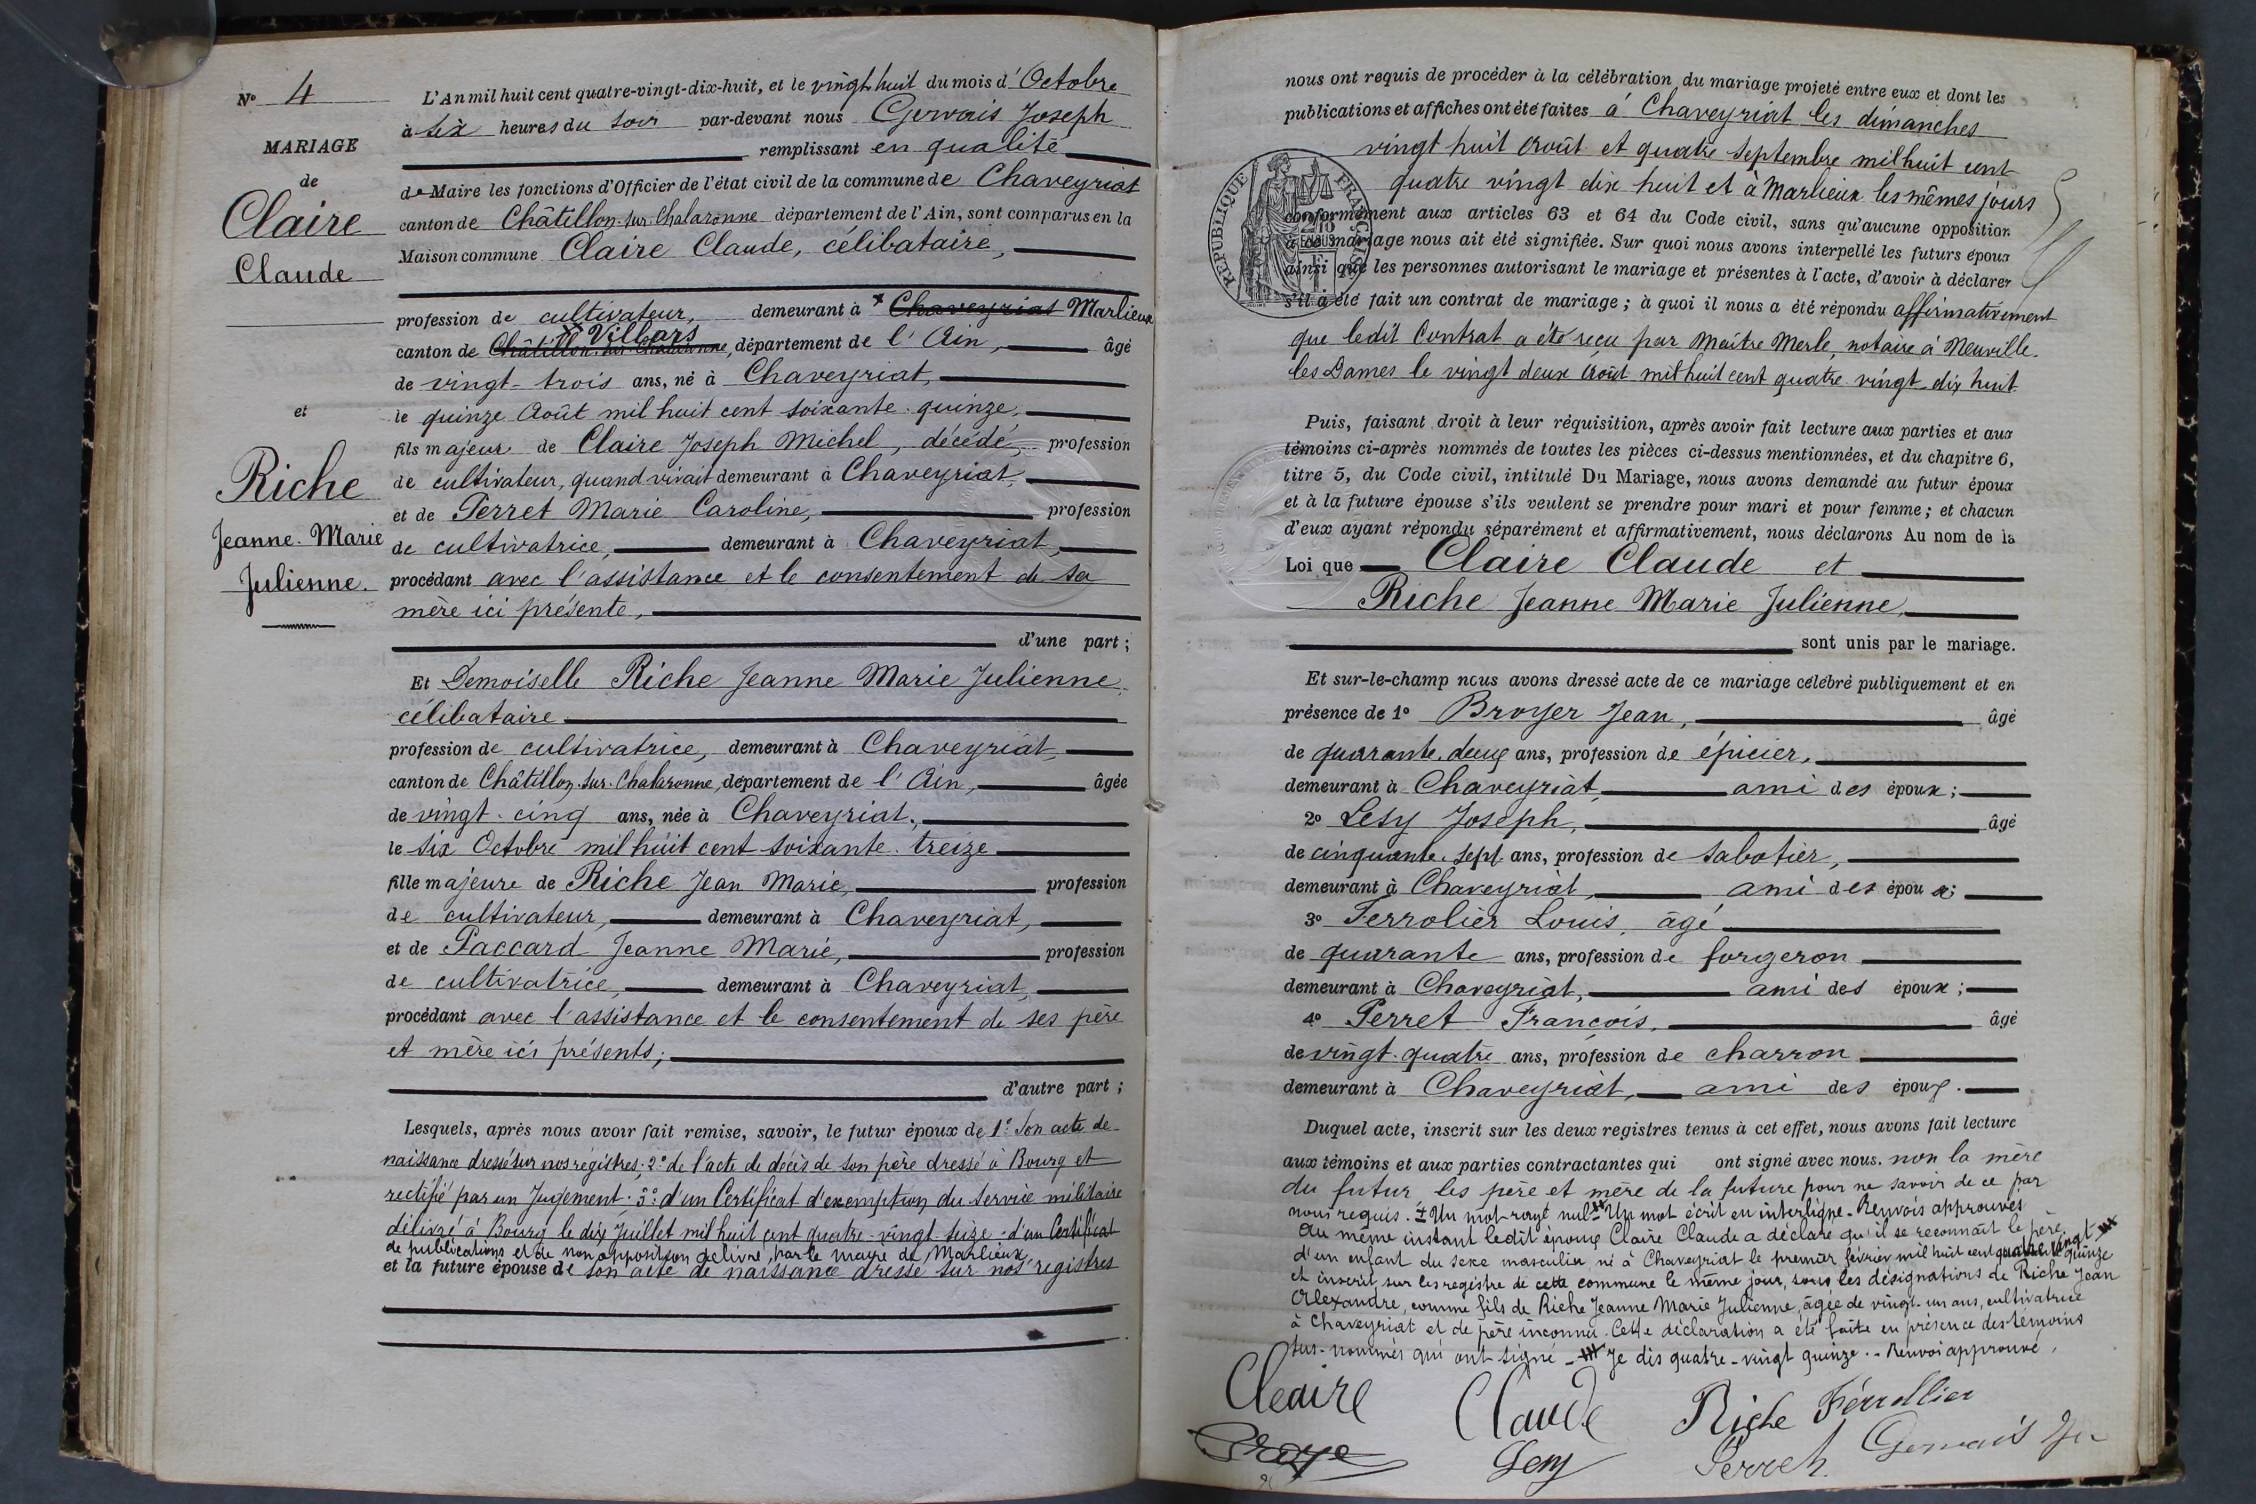 Nº 4
MARIAGE
de
Claire
Claude
et
Riche
Jeanne-Marie
Julienne.
L'An mil huit cent quatre-vingt-dix-huit, et le vingt huit du mois d'Octobre
à six heures du soir par-devant nous Gervais Joseph
remplissant en qualité
de Maire les fonctions d'Officier de l'état civil de la commune de Chaveyriat
canton de Châtillon-sur-Chalaronne département de l'Ain, sont comparus en la
Maison commune Claire Claude, célibataire,
profession de cultivateur, demeurant à x Chaveyriat Marlieux
xx Villars
canton de Châtillon-sur-Chalaronne, département de l'Ain, âgé
de vingt-trois ans, né à Chaveyriat,
le quinze Août mil huit cent soixante-quinze,
fils majeur de Claire Joseph Michel, décédé, profession
de cultivateur, quand vivait demeurant à Chaveyriat,
et de Perret Marie Caroline, profession
de cultivatrice, demeurant à Chaveyriat,
procédant avec l'assistance et le consentement de sa
mère ici présente,
d'une part ;
Et Demoiselle Riche Jeanne Marie Julienne,
célibataire
profession de cultivatrice, demeurant à Chaveyriat,
canton de Châtillon-sur-Chalaronne, département de l'Ain, âgée
de vingt-cinq ans, née à Chaveyriat,
le six Octobre mil huit cent soixante-treize
fille majeure de Riche Jean Marie, profession
de cultivateur, demeurant à Chaveyriat,
et de Paccard Jeanne Marie, profession
de cultivatrice, demeurant à Chaveyriat,
procédant avec l'assistance et le consentement de ses père
et mère ici présents ;
d'autre part ;
Lesquels, après nous avoir fait remise, savoir, le futur époux de 1º son acte de
naissance dressé sur nos régistres ; 2º de l'acte de décès de son père dressé à Bourg et
rectifié par un Jugement ; 3º d'un Certificat d'exemption du service militaire
délivré à Bourg le dix Juillet mil huit cent quatre-vingt-seize - d'un Certificat
de publications et de non opposition délivré par le maire de Marlieux,
et la future épouse de son acte de naissance dressé sur nos régistres
nous ont requis de procéder à la célébration du mariage projeté entre eux et dont les
publications et affiches ont été faites à Chaveyriat les dimanches
vingt huit Août et quatre Septembre mil huit cent
quatre vingt dix huit et à Marlieux les mêmes jours
RÉPUBLIQUE FRANÇAISE
conformément aux articles 63 et 64 du Code civil, sans qu'aucune opposition
à ce mariage nous ait été signifiée. Sur quoi nous avons interpellé les futurs époux
ainsi que les personnes autorisant le mariage et présentes à l'acte, d'avoir à déclarer
s'il a été fait un contrat de mariage ; à quoi il nous a été répondu affirmativement
que ledit Contrat a été reçu par Maître Merle, notaire à Neuville-
les Dames le vingt deux Août mil huit cent quatre vingt dix huit
Puis, faisant droit à leur réquisition, après avoir fait lecture aux parties et aux
témoins ci-après nommés de toutes les pièces ci-dessus mentionnées, et du chapitre 6,
titre 5, du Code civil, intitulé Du Mariage, nous avons demandé au futur époux
et à la future épouse s'ils veulent se prendre pour mari et pour femme ; et chacun
d'eux ayant répondu séparément et affirmativement, nous déclarons Au nom de la
Loi que Claire Claude et
Riche Jeanne Marie Julienne,
sont unis par le mariage.
Et sur-le-champ nous avons dressé acte de ce mariage célébré publiquement et en
présence de 1º Broyer Jean, âgé
de quarante-deux ans, profession de épicier,
demeurant à Chaveyriat, ami des époux ;
2º Lesy Joseph, âgé
de cinquante-sept ans, profession de sabotier,
demeurant à Chaveyriat, ami des époux ;
3º Ferrolier Louis, âgé
de quarante ans, profession de forgeron
demeurant à Chaveyriat, ami des époux ;
4º Perret François, âgé
de vingt-quatre ans, profession de charron
demeurant à Chaveyriat, ami des époux.
Duquel acte, inscrit sur les deux registres tenus à cet effet, nous avons fait lecture
aux témoins et aux parties contractantes qui ont signé avec nous. non la mère
du futur les père et mère de la future pour ne savoir de ce par
nous requis. x Un mot rayé nul xx Un mot écrit en interligne - Renvois approuvés
Au même instant ledit époux Claire Claude a déclaré qu'il se reconnaît le père
d'un enfant du sexe masculin né à Chaveyriat le premier février mil huit cent quatre vingt quinze
et inscrit sur les registre de cette commune le même jour, sous les désignations de Riche Jean
Alexandre, comme fils de Riche Jeanne Marie Julienne, âgée de vingt-un ans, cultivatrice
à Chaveyriat et de père inconnu. Cette déclaration a été faite en présence des témoins
sus-nommés qui ont signé - xxx Je dis quatre-vingt quinze. - Renvoi approuvé.
Claire Claude Riche Férrollier
Broye Lesy Perret Gervais